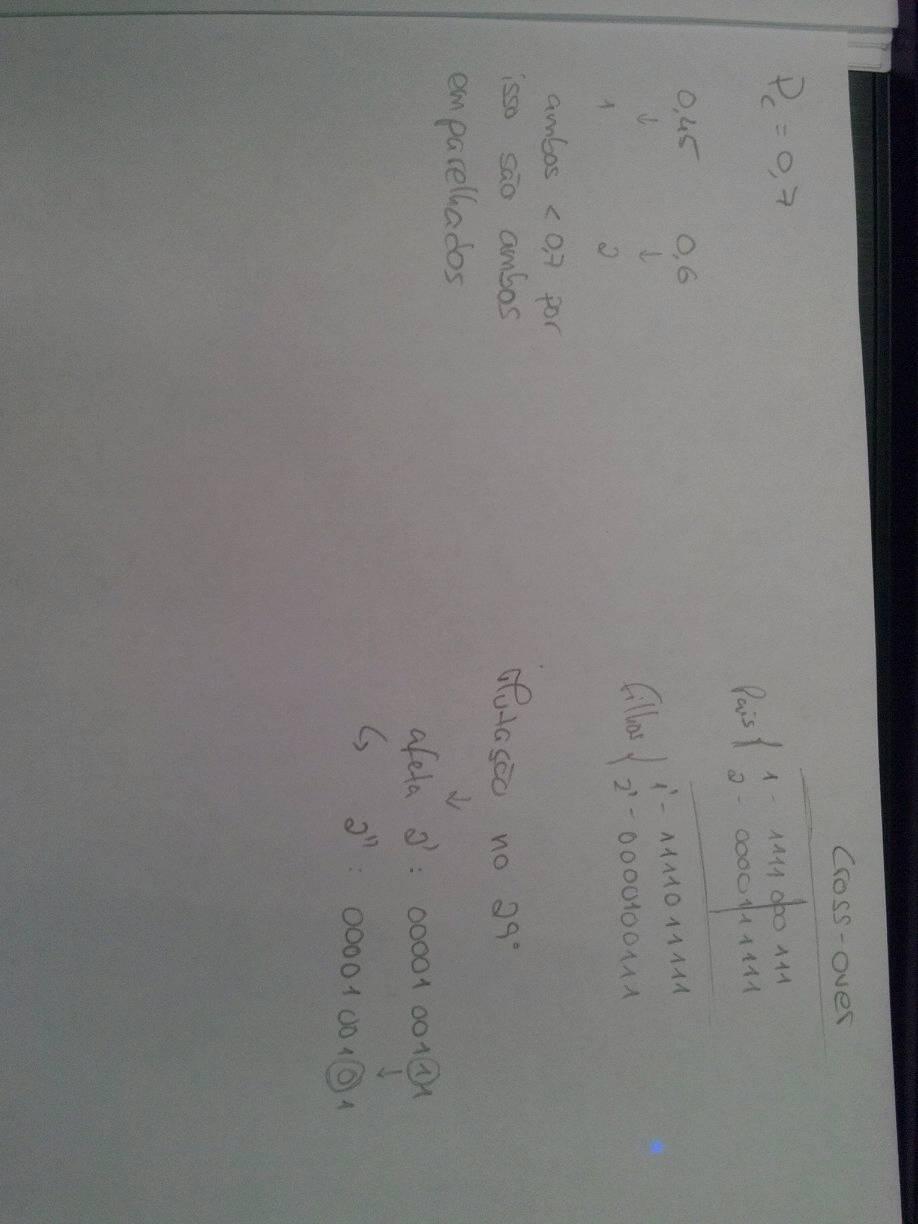 Pc = 0,7
0,45 0,6
↓ ↓
1 2
ambos < 0,7 por
isso são ambos
emparelhados
Cross-over
Pais { 1 - 1111000111
2 - 0000111111
Filhos { 1' - 1111011111
2' - 0000100111
Mutação no 29º
↓
afeta 2': 0000100111
↓
↳ 2'': 0000100101